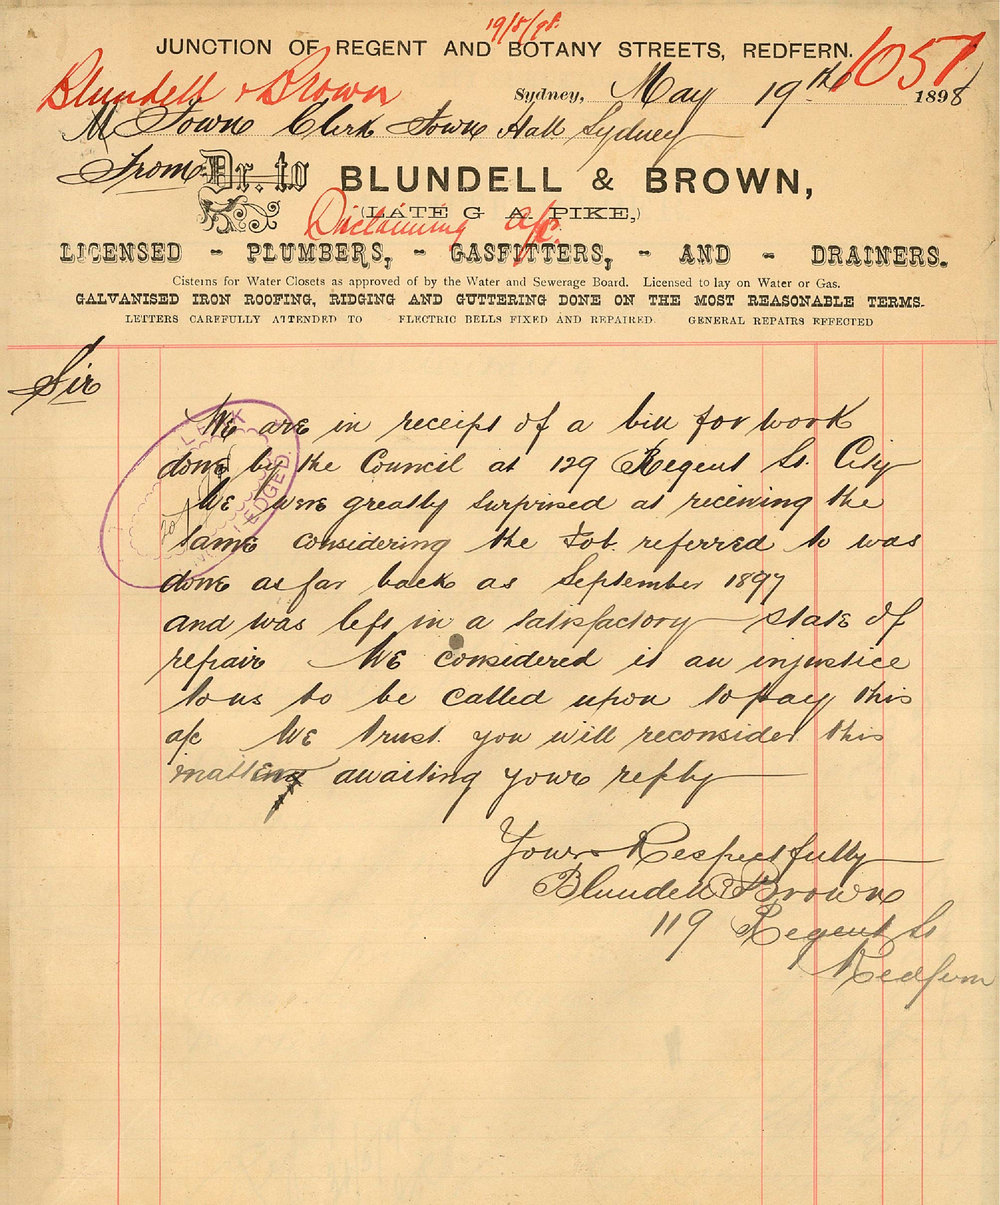 19/5/98.
JUNCTION OF REGENT AND BOTANY STREETS, REDFERN.
1051
Blundell & Brown
Sydney, May 19th 1898
M Town Clerk Town Hall Sydney
From Dr. to BLUNDELL & BROWN,
(LATE G A PIKE,)
Disclaiming a/c.
LICENSED - PLUMBERS, - GASFITTERS, - AND - DRAINERS.
Cisterns for Water Closets as approved of by the Water and Sewerage Board. Licensed to lay on Water or Gas.
GALVANISED IRON ROOFING, RIDGING AND GUTTERING DONE ON THE MOST REASONABLE TERMS.
LETTERS CAREFULLY ATTENDED TO ELECTRIC BELLS FIXED AND REPAIRED. GENERAL REPAIRS EFFECTED
Sir
We are in receipt of a bill for work
done by the Council at 129 Regent St. City
We were greatly surprised at receiving the
same considering the Job. referred to was
done as far back as September 1897
and was left in a satisfactory state of
repair We considered it an injustice
to us to be called upon to pay this
a/c We trust you will reconsider this
matter awaiting your reply
Yours Respectfully
Blundell & Brown
119 Regent St
Redfern